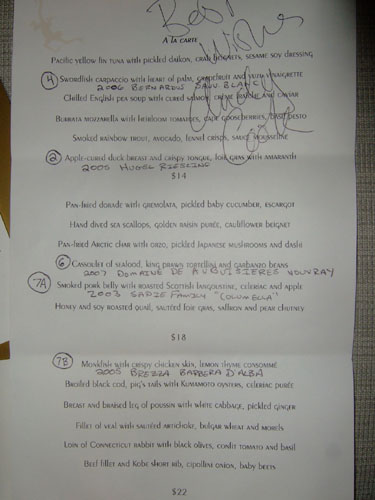 Best
Wishes
A LA CARTE
Pacific yellow fin tuna with pickled daikon, crab beignets, sesame soy dressing
4 Swordfish carpaccio with heart of palm, grapefruit and yuzu vinaigrette
2006 BERNARDUS SAUV. BLANC
Chilled English pea soup with cured salmon, crème fraîche and caviar
Burrata mozzarella with heirloom tomatoes, cape gooseberries, basil pesto
Smoked rainbow trout, avocado, fennel crisps, sauce mousseline
2 Apple-cured duck breast and crispy tongue, foie gras with amaranth
2005 HUGEL RIESLING
$14
Pan-fried dorade with gremolata, pickled baby cucumber, escargot
Hand dived sea scallops, golden raisin purée, cauliflower beignet
Pan-fried Arctic char with orzo, pickled Japanese mushrooms and dashi
6 Cassoulet of seafood, king prawn tortellini and garbanzo beans
2007 DOMAINE DE AUBUISIERES VOUVRAY
7A Smoked pork belly with roasted Scottish langoustine, celeriac and apple
2003 SADIE FAMILY "COLUMELLA"
Honey and soy roasted quail, sautéed foie gras, saffron and pear chutney
$18
7B Monkfish with crispy chicken skin, lemon thyme consommé
2005 BREZZA BARBERA D'ALBA
Broiled black cod, pig's tails with Kumamoto oysters, celeriac purée
Breast and braised leg of poussin with white cabbage, pickled ginger
Fillet of veal with sautéed artichoke, bulgar wheat and morels
Loin of Connecticut rabbit with black olives, confit tomato and basil
Beef fillet and Kobe short rib, cipollini onion, baby beets
$22